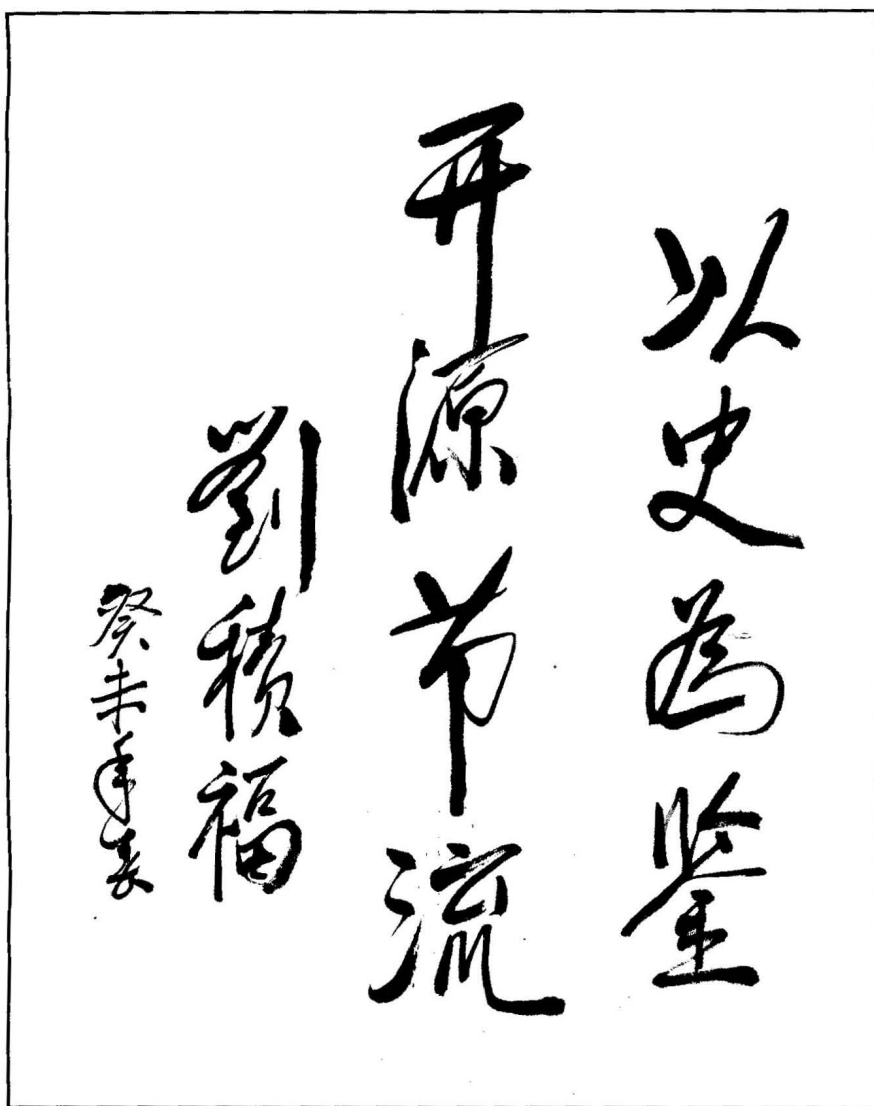 以史為鉴
开源节流
劉積福
癸未年春